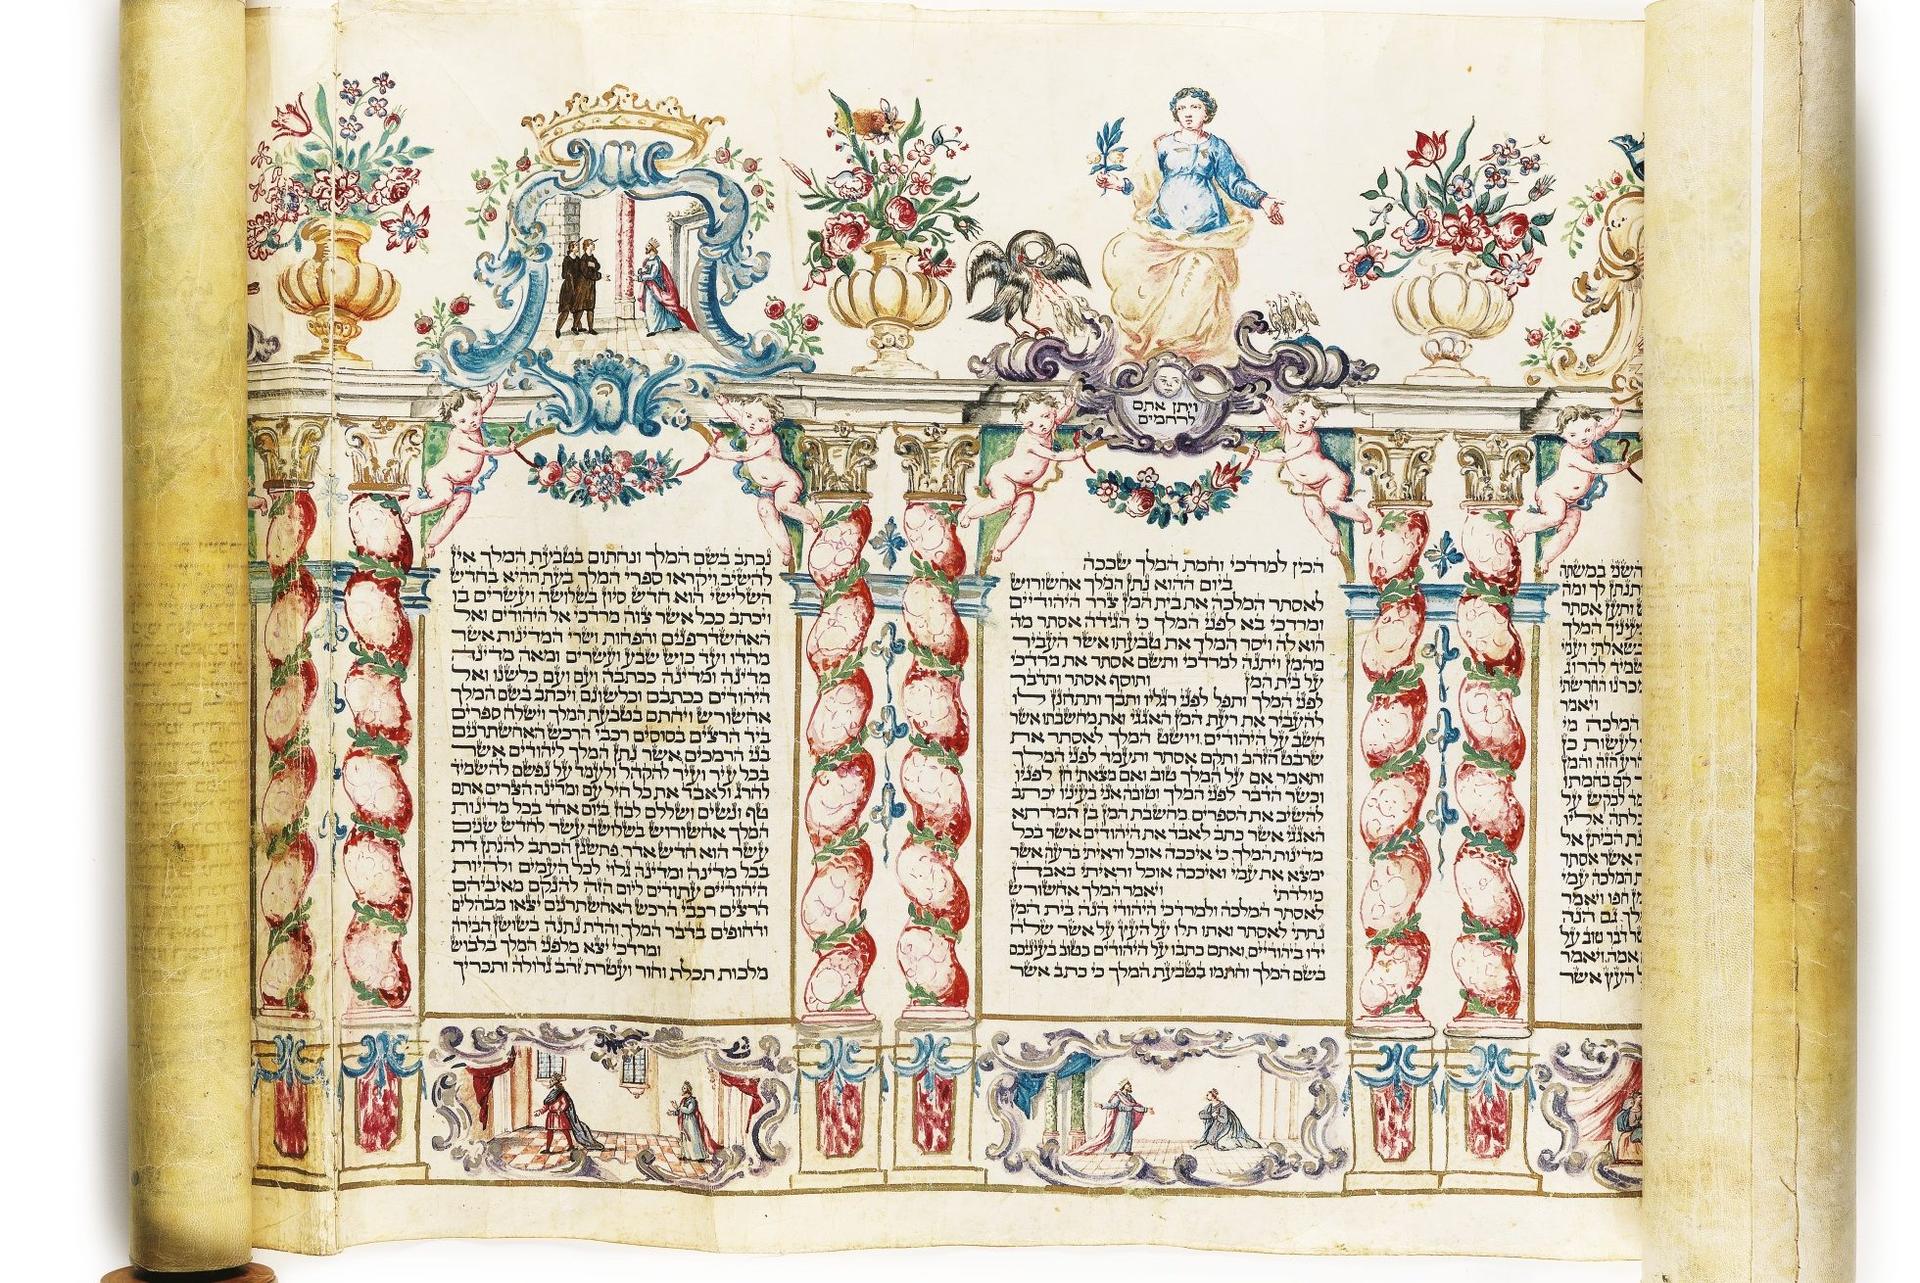 ויתן אתם
לרחמים
השני במשתה
לך ומה
ותען אסתר
בעיניך המלך
בשאלתי ועמי
להרוג
החרשתי
ויאמר
המלכה מי
לעשות כן
הזה והמן
קם בחמתו
לבקש על
כלתה אליו
הביתן אל
אשר אסתר
המלכה עמי
חפו ויאמר
גם הנה
דבר טוב על
אמה ויאמר
העץ אשר
הכין למרדכי וחמת המלך שככה
ביום ההוא נתן המלך אחשורוש
לאסתר המלכה את בית המן צרר היהודיים
ומרדכי בא לפני המלך כי הגידה אסתר מה
הוא לה ויסר המלך את טבעתו אשר העביר
מהמן ויתנה למרדכי ותשם אסתר את מרדכי
על בית המן ותוסף אסתר ותדבר
לפני המלך ותפל לפני רגליו ותבך ותתחנן לו
להעביר את רעת המן האגגי ואת מחשבתו אשר
חשב על היהודים ויושט המלך לאסתר את
שרבט הזהב ותקם אסתר ותעמד לפני המלך
ותאמר אם על המלך טוב ואם מצאתי חן לפניו
וכשר הדבר לפני המלך וטובה אני בעיניו יכתב
להשיב את הספרים מחשבת המן בן המדתא
האגגי אשר כתב לאבד את היהודים אשר בכל
מדינות המלך כי איככה אוכל וראיתי ברעה אשר
ימצא את עמי ואיככה אוכל וראיתי באבדן
מולדתי ויאמר המלך אחשורש
לאסתר המלכה ולמרדכי היהודי הנה בית המן
נתתי לאסתר ואתו תלו על העץ על אשר שלח
ידו ביהודיים ואתם כתבו על היהודים כטוב בעיניכם
בשם המלך וחתמו בטבעת המלך כי כתב אשר
נכתב בשם המלך ונחתום בטבעת המלך אין
להשיב ויקראו ספרי המלך בעת ההיא בחדש
השלישי הוא חדש סיון בשלושה ועשרים בו
ויכתב ככל אשר צוה מרדכי אל היהודים ואל
האחשדרפנים והפחות ושרי המדינות אשר
מהדו ועד כוש שבע ועשרים ומאה מדינה
מדינה ומדינה ככתבה ועם ועם כלשנו ואל
היהודים ככתבם וכלשונם ויכתב בשם המלך
אחשורש ויחתם בטבעת המלך וישלח ספרים
ביד הרצים בסוסים רכבי הרכש האחשתרנים
בני הרמכים אשר נתן המלך ליהודים אשר
בכל עיר ועיר להקהל ולעמד על נפשם להשמיד
להרג ולאבד את כל חיל עם ומדינה הצרים אתם
טף ונשים ושללם לבוז ביום אחד בכל מדינות
המלך אחשורוש בשלושה עשר לחדש שנים
עשר הוא חדש אדר פתשגן הכתב להנתן דת
בכל מדינה ומדינה גלוי לכל העמים ולהיות
היהודיים עתודים ליום הזה להנקם מאיביהם
הרצים רכבי הרכש האחשתרנים יצאו מבהלים
ודחופים בדבר המלך והדת נתנה בשושן הבירה
ומרדכי יצא מלפני המלך בלבוש
מלכות תכלת וחור ועטרת זהב גדולה ותכריך